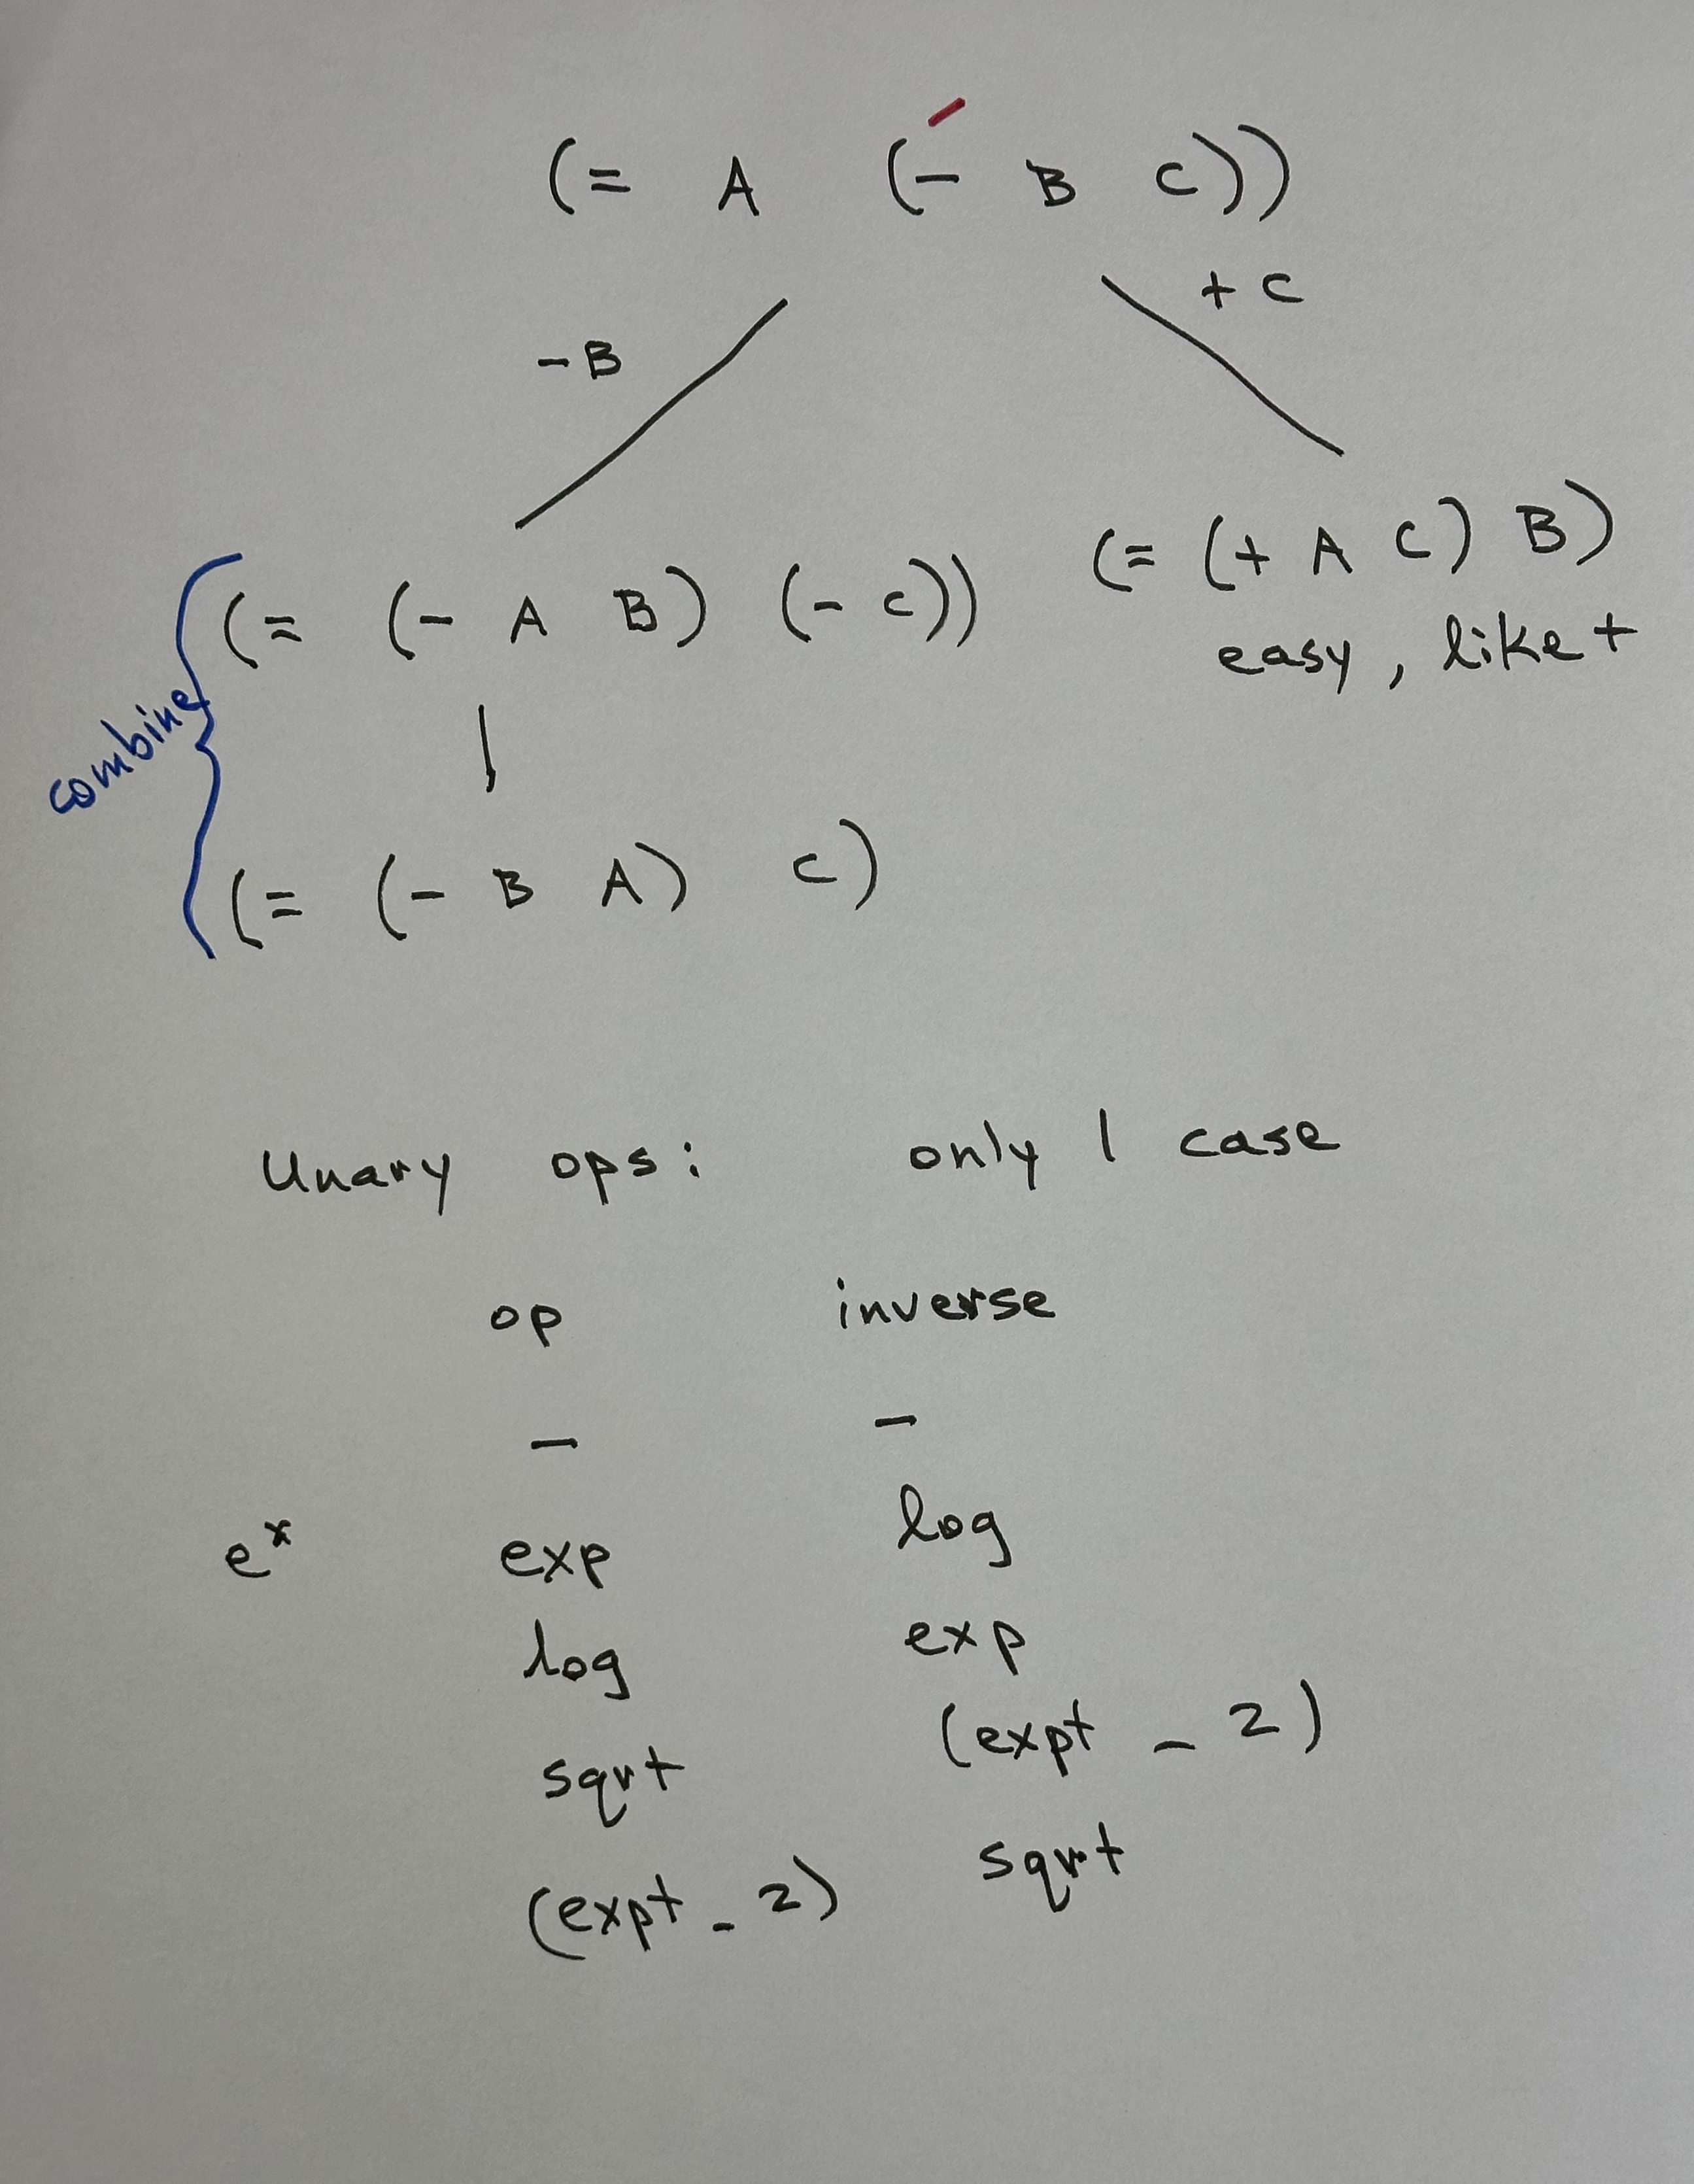 (= A (- B C))
-B
+ C
(= (- A B) (- C))
(= (+ A C) B)
easy, like +
combine
(= (- B A) C)
Unary ops: only 1 case
op inverse
- -
e^x exp log
log exp
sqrt (expt _ 2)
(expt _ 2) sqrt